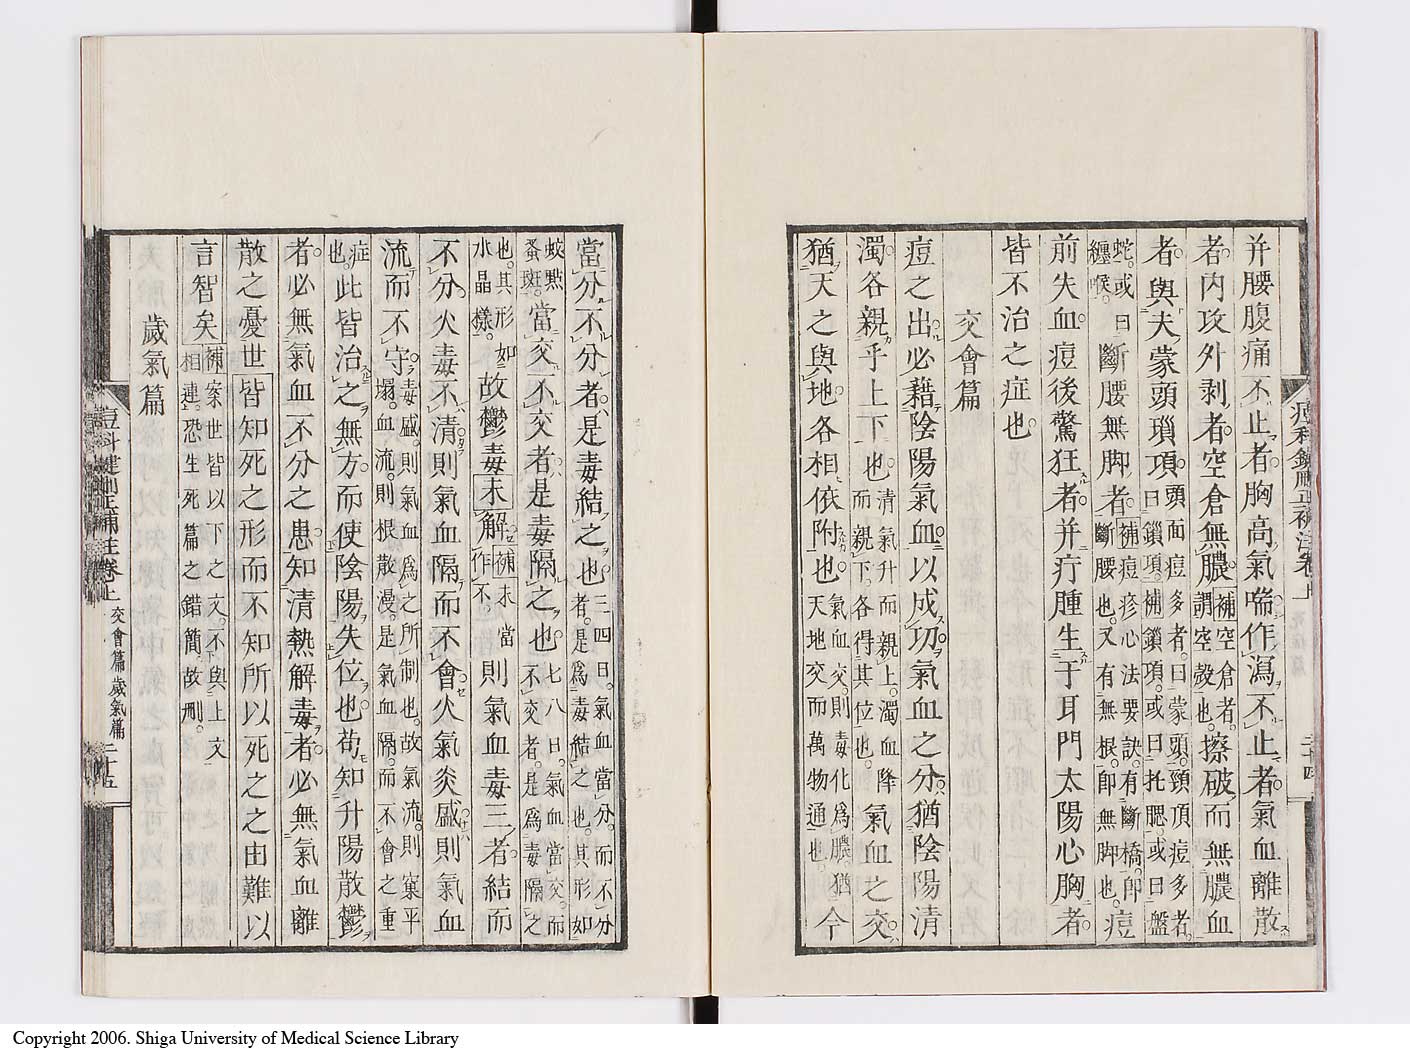 并腰腹痛不止者胸高氣喘作瀉不止者氣血離散
者內攻外剥者空倉無膿補空倉者謂空殼也擦破而無膿血
者與夫蒙頭瑣項頭面痘多者曰蒙頭頸項痘多者曰鎖項補鎖項或曰托腮或曰盤
蛇或曰纏喉斷腰無脚者補痘疹心法要訣有斷橋卽斷腰也又有無根卽無脚也痘
前失血痘後驚狂者并疔腫生于耳門太陽心胸者
皆不治之症也
交會篇
痘之出必藉陰陽氣血以成功氣血之分猶陰陽清
濁各親乎上下也清氣升而親上濁血降而親下各得其位也氣血之交
猶天之與地各相依附也氣血交則毒化爲膿猶天地交而萬物通也今
痘科鍵刪正補注卷上
二十四
當分不分者是毒結之也三四日氣血當分而不分者是爲毒結之也其形如
蚊㸃蚤斑當交不交者是毒隔之也七八日氣血當交而不交者是爲毒隔之
也其形如水晶樣故鬱毒未解補未當作不則氣血毒三者結而
不分火毒不清則氣血隔而不會火氣炎盛則氣血
流而不守毒盛則氣血爲之所制也故氣流則窠平塌血流則根散漫是氣血隔而不會之重
症也此皆治之無方而使陰陽失位也苟知升陽散鬱
者必無氣血不分之患知清熱解毒者必無氣血離
散之憂世皆知死之形而不知所以死之之由難以
言智矣補案世皆以下之文不與上文相連恐生死篇之錯簡故刪
歲氣篇
痘科鍵刪正補注卷上 交會篇 歲氣篇 二十五
Copyright 2006. Shiga University of Medical Science Library